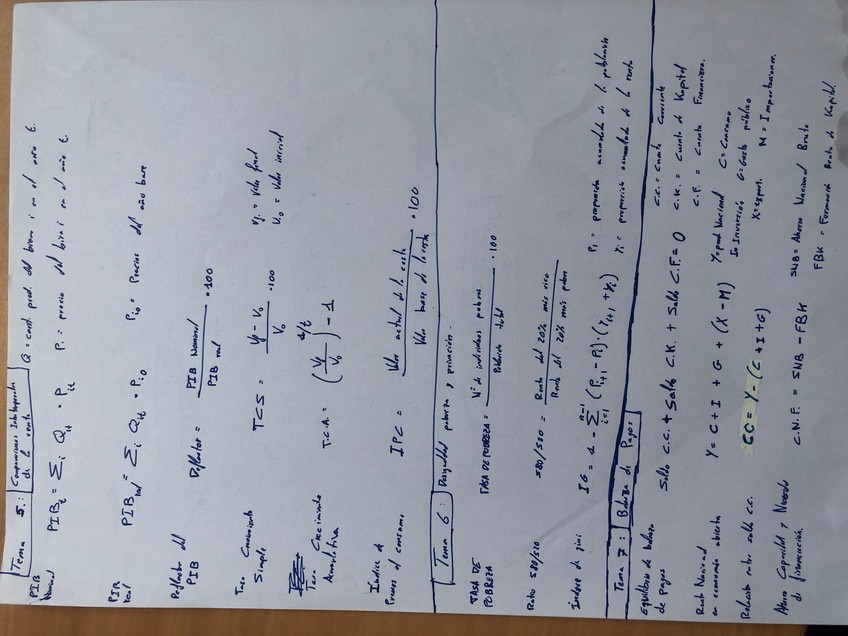 Tema 5: Comparaciones Intertemporales de la renta
PIB Nominal
PIB_t = Σ_i Q_it · P_it
Q = cant. prod. del bien i en el año t.
P. = precio del bien i en el año t.
PIB real
PIB_real = Σ_i Q_it · P_i0
P_i0 = Precios del año base
Deflactor del PIB
Deflactor = PIB Nominal / PIB real · 100
Tasa Crecimiento Simple
TCS = Vf - V0 / V0 · 100
Vf = Valor final
V0 = Valor inicial
Tasa Crecimiento Acumulativa
T.C.A. = (Vf / V0)^1/t - 1
Índice de Precios al consumo
IPC = Valor actual de la cesta / Valor base de la cesta · 100
Tema 6: Desigualdad pobreza y privación.
TASA DE POBREZA
TASA DE POBREZA = Nº de individuos pobres / Población total · 100
Ratio S80/S20
S80/S20 = Renta del 20% más rico / Renta del 20% más pobre
Índice de gini
IG = 1 - Σ_i=1^n-1 (P_i+1 - P_i) · (Y_i+1 + Y_i)
P_i = proporción acumulada de la población
Y_i = proporción acumulada de la renta
Tema 7: Balanza de Pagos
Equilibrio de balanza de pagos
Saldo C.C. + Saldo C.K. + Saldo C.F. = 0
C.C. = Cuenta Corriente
C.K. = Cuenta de Kapital
C.F. = Cuenta Financiera.
Renta Nacional en economía abierta
Y = C + I + G + (X - M)
Y = prod Nacional C = Consumo
I = Inversión G = Gasto público
X = export. M = Importaciones.
Relación entre saldo c.c.
CC = Y - (C + I + G)
Ahorro Capacidad y Necesida de financiación.
C.N.F. = SNB - FBK
SNB = Ahorro Nacional Bruto
FBK = Formación Bruta de Kapital